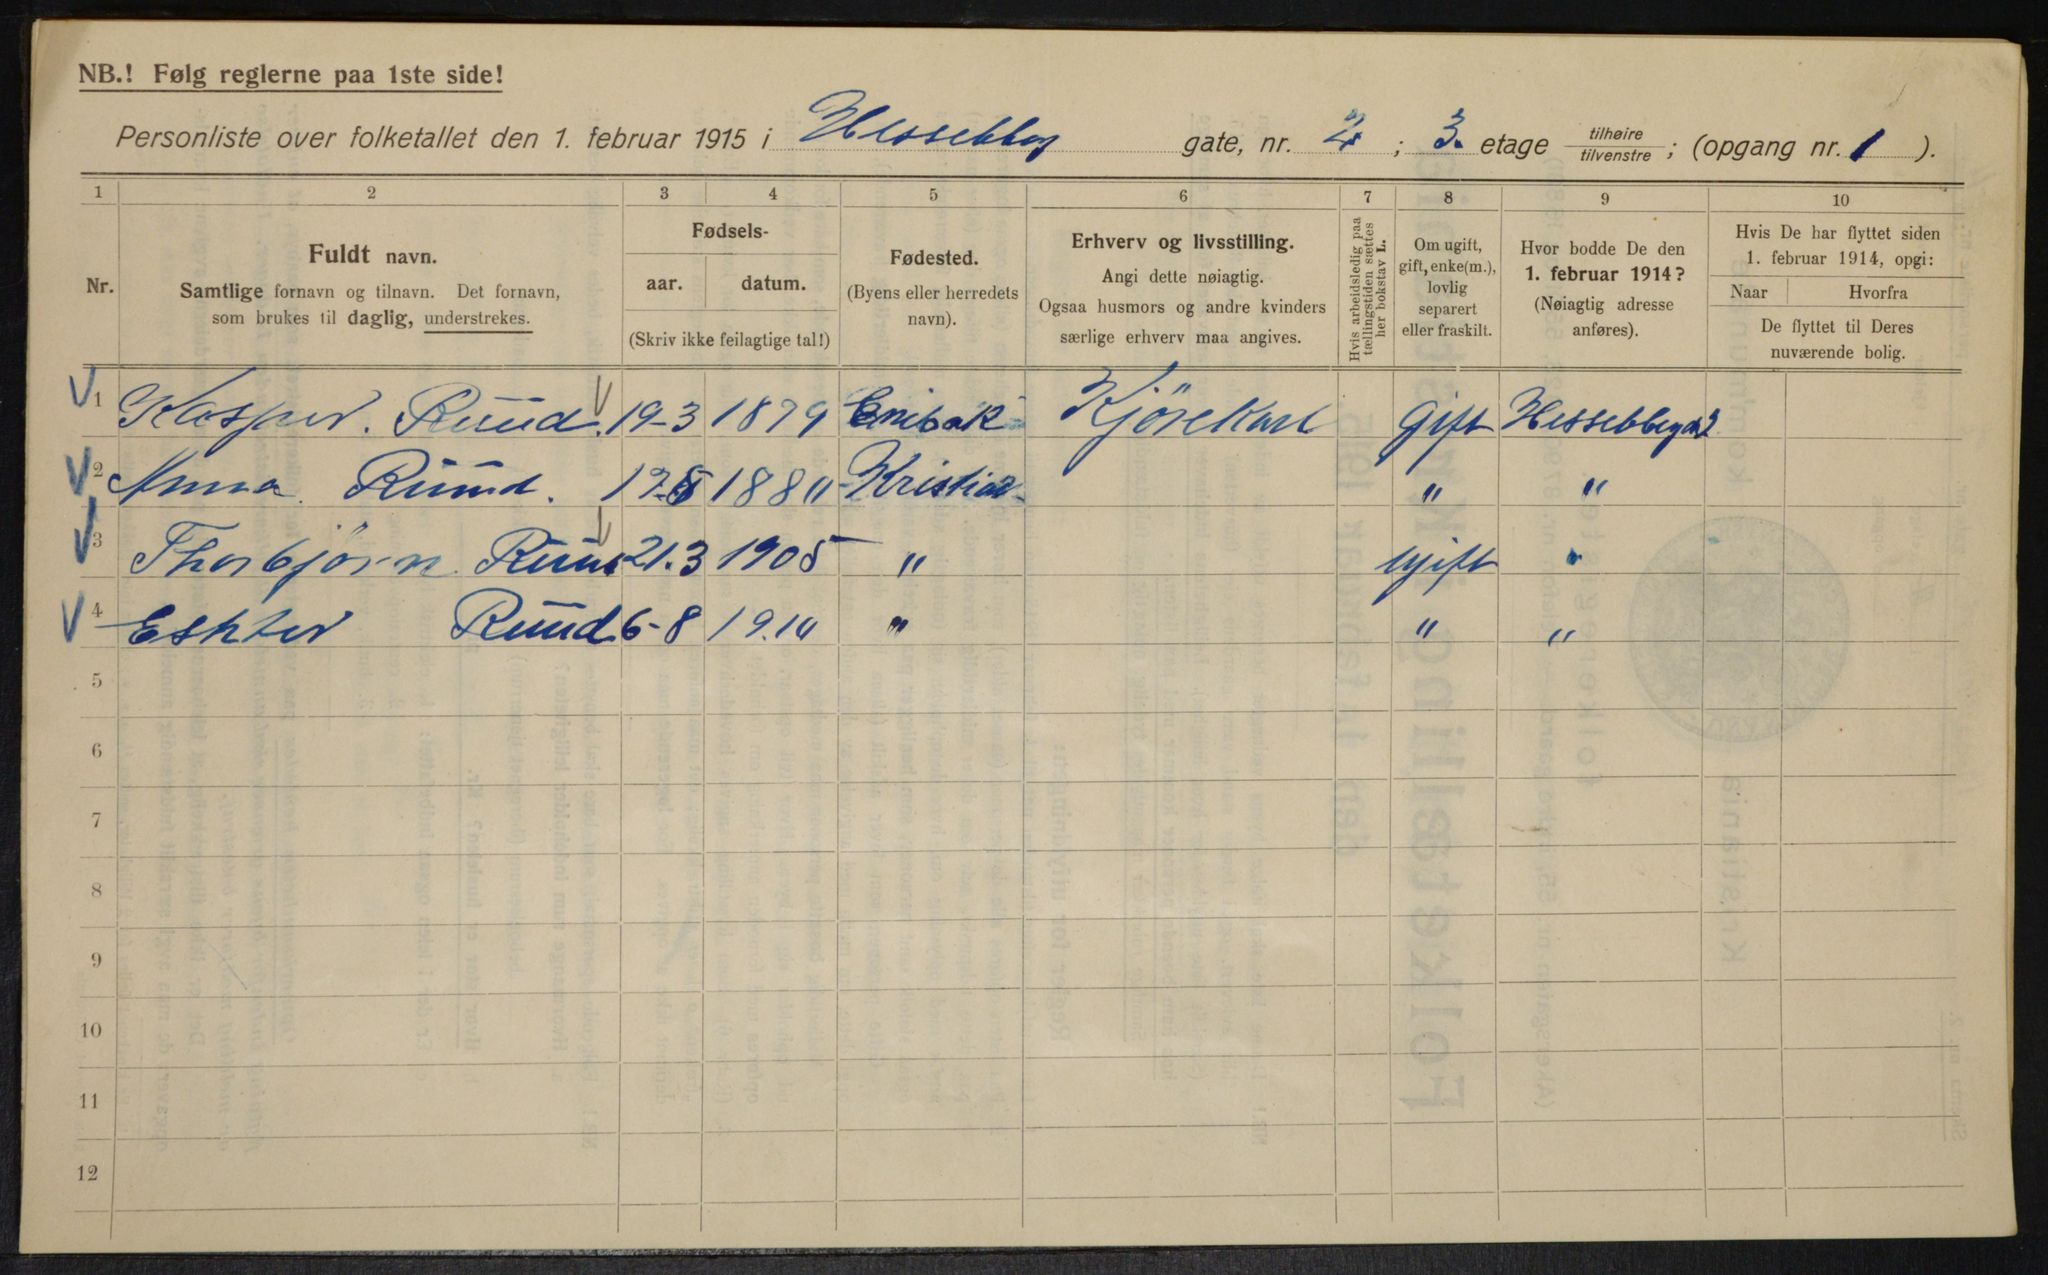 NB.! Følg reglerne paa 1ste side!
Personliste over folketallet den 1. februar 1915 i Hessebbog gate, nr. 2; 3. etage tilhøire/tilvenstre; (opgang nr. 1).
1 2 3 4 5 6 7 8 9 10
Nr.
Fuldt navn.
Samtlige fornavn og tilnavn. Det fornavn,
som brukes til daglig, understrekes.
Fødsels-
aar. datum.
(Skriv ikke feilagtige tal!)
Fødested.
(Byens eller herredets
navn).
Erhverv og livsstilling.
Angi dette nøiagtig.
Ogsaa husmors og andre kvinders
særlige erhverv maa angives.
Hvis arbeidsledig paa
tællingstiden sættes
her bokstav L.
Om ugift,
gift, enke(m.),
lovlig
separert
eller fraskilt.
Hvor bodde De den
1. februar 1914?
(Nøiagtig adresse
anføres).
Hvis De har flyttet siden
1. februar 1914, opgi:
Naar Hvorfra
De flyttet til Deres
nuværende bolig.
1 Kasper. Ruud. 19-3 1879 Enibak Kjörekarl gift
2 Anna Ruud. 1880 Kristia " "
3 Thorbjørn Ruud 21.3 1905 " Ugift "
4 Eshter Ruud 6-8 19.10 " " "
5
6
7
8
9
10
11
12